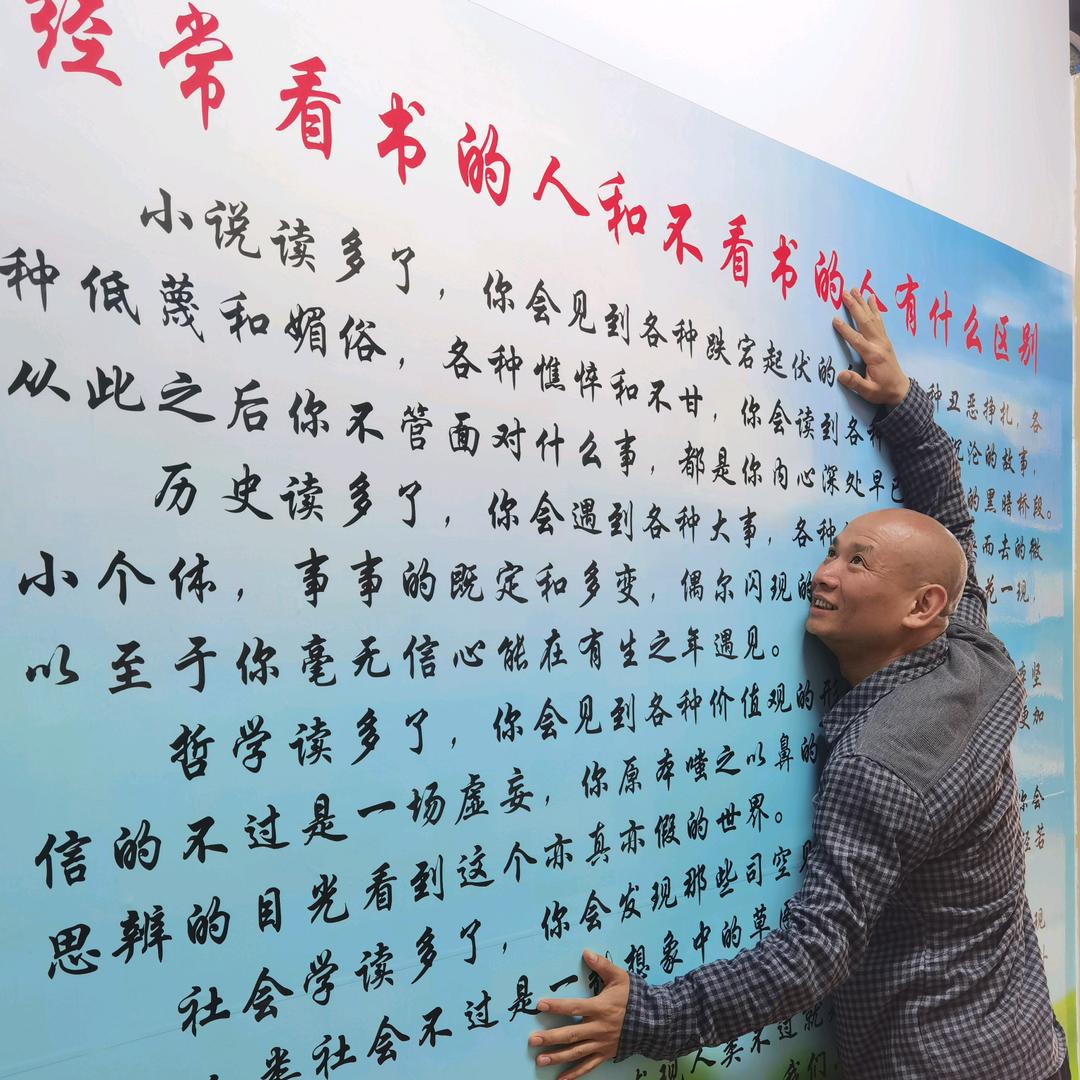 经常看书的人和不看书的人有什么区别
小说读多了，你会见到各种跌宕起伏的 种丑恶挣扎，各
种低蔑和媚俗，各种憔悴和不甘，你会读到各 沉沦的故事，
从此之后你不管面对什么事，都是你内心深处早已 的黑暗桥段。
历史读多了，你会遇到各种大事，各种 而去的微
小个体，事事的既定和多变，偶尔闪现的 花一现，
以至于你毫无信心能在有生之年遇见。
哲学读多了，你会见到各种价值观的形 坚
信的不过是一场虚妄，你原本嗤之以鼻的 更加
思辨的目光看到这个亦真亦假的世界。
社会学读多了，你会发现那些司空见 你会
类社会不过是一种想象中的草 若
现人类不过就
我们